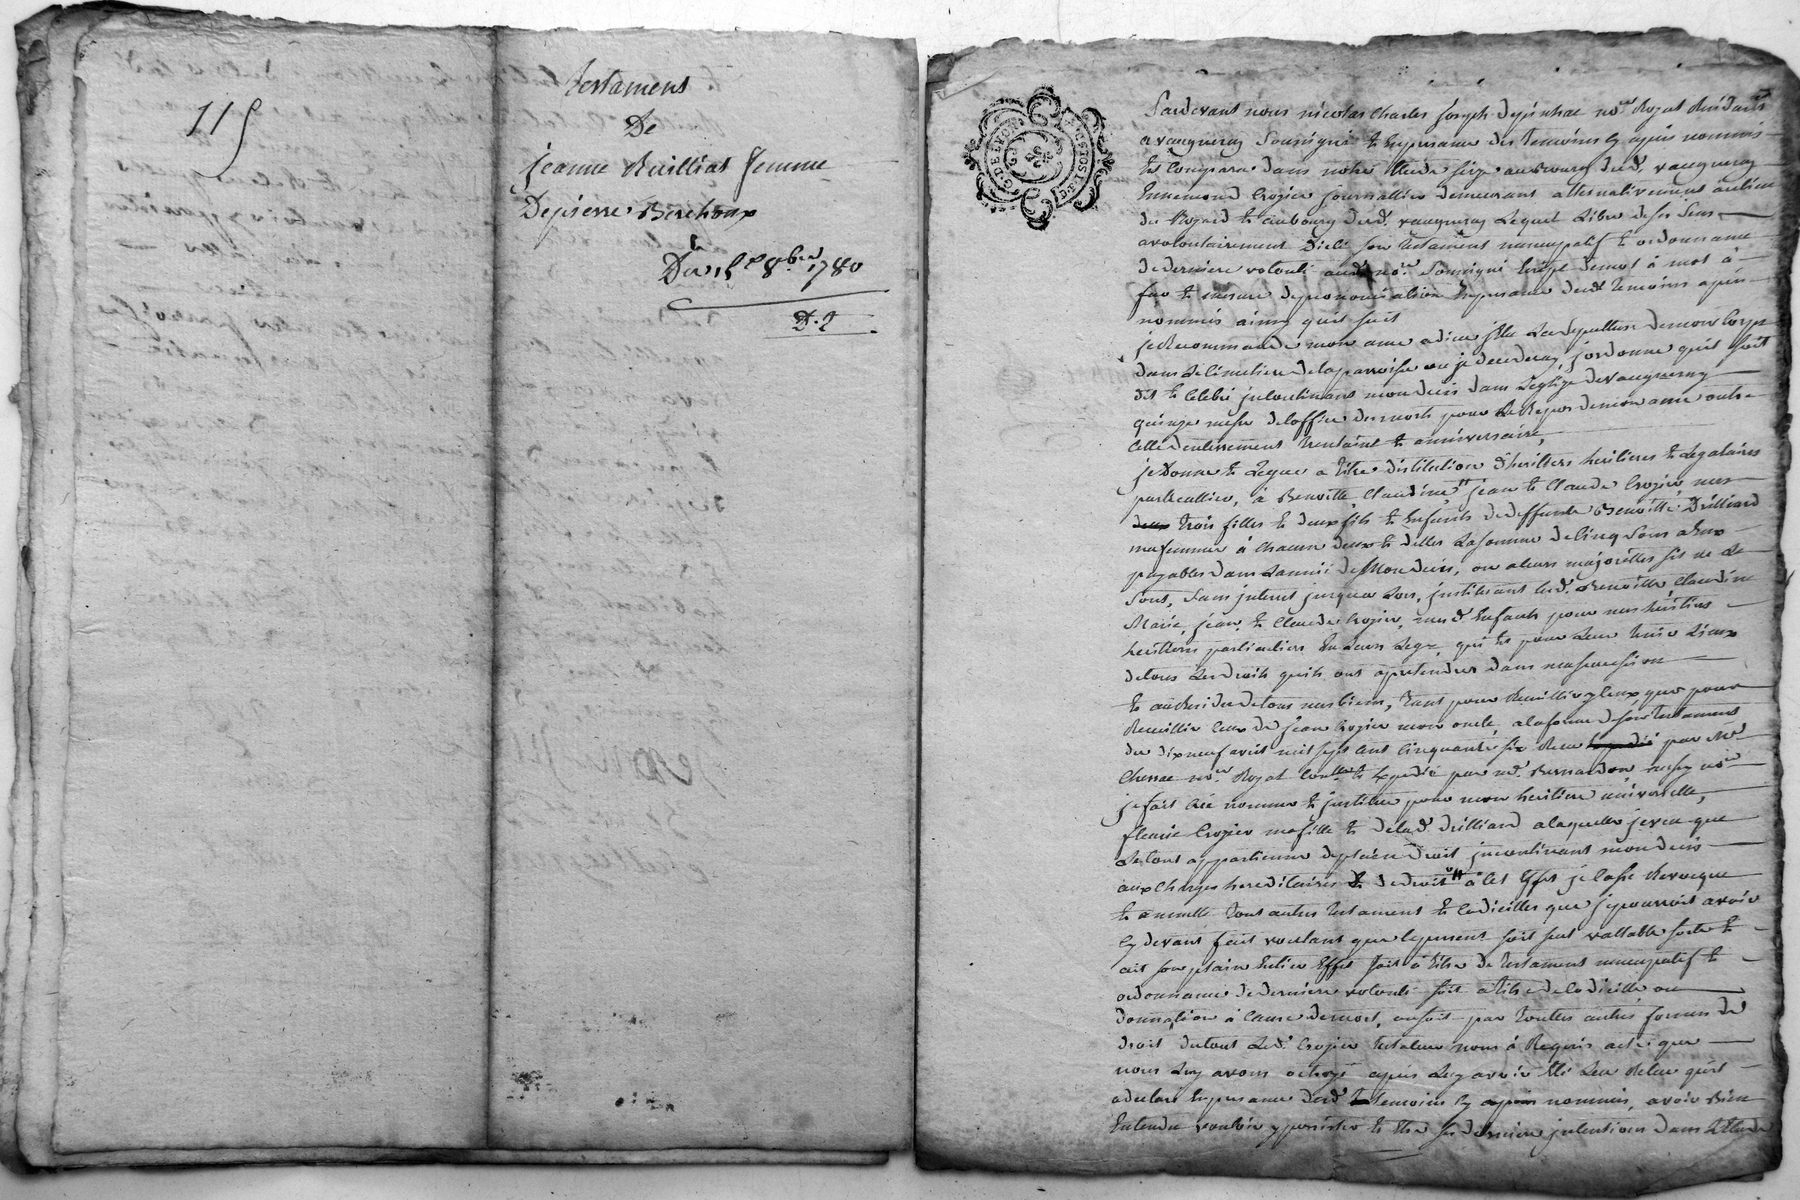 115
testament
De
jeanne Ruilliat femme
Depierre Berthoux
Du 15e 8bre 1780
D. 2
G. D. LYON
Pardevant nous nicolas Charles Joseph no.re Royal Residant
a vaugneray soussigné et En presance des temoins Cy apres nommés
Est Comparu dans notre Etude size au Bourg dud. vaugneray
Ennemond Crozier journallier demeurant alternativement au lieu
du et au bourg dud. vaugneray Lequel Libre de ses sens
a volontairement Dicté son testament nuncupatif et ordonnance
de derniere volonté aud. no.re soussigné Ecrit de mot à mot à
fur et mesure de prononciation En presance desd. temoins apres
nommés ainsy quil suit
je Recommande mon ame a dieu Elis La Sepulture de mon Corps
dans le Cimetiere de la parroisse ou je decederay, jordonne quil soit
dit et Celebré incontinant mon deces dans Leglize de vaugneray
quinze messes de loffice des morts pour Le Repos de mon ame outre
Celle denterrement trentaine et anniversaire,
je Donne et Legue a titre distitution dheritiers heritieres et Legataires
particulliers, à Benoitte Claudine jean et Claude Crozier mes
deux trois filles et deux fils et Enfants de deffunte Benoitte Drilliard
ma femme à Chacun deux et delles La somme de Cinq sous a Eux
payables dans Lannée de Mon deces, ou a leurs majorittés sils ne Le
sont, sans interet jusqua Lors, instituant lesd. Benoitte, Claudine
Marie, jean, et Claude Crozier, mesd. Enfants pour mes heritiers
heritieres particuliers En Leurs Legs, qui Est pour Leur tenir Lieux
de tous Les droits quils ont a pretendre dans ma succession
Et au Residu de tous mes biens, tant pour Recueillir yceux, que pour
Recueillir Ceux de jean Crozier mon oncle, a la forme de son testament
du dix neuf avril mil sept Cent Cinquante six Recu par Me
no.re Royal et Expedié par me. Bernardon, aussy no.re
je fait Crée nomme et jnstitue pour mon heritiere universelle,
fleurie Crozier ma fille et de lad. drilliard a laquelle je veu que
Le tout appartienne de plein droit jncontinant mon deces
aux Charges hereditaires Et de droit à Cet Effet je Casse Revoque
Et annulle tout autres testament Et Codicilles que j pourrois avoir
Cy devant fait voulant que le present soit seul vallable sorte Et
ait son plain Entier Effet soit à titre de testament nuncupatif Et
ordonnance de derniere volonté soit à titre de Codicille ou
donnation à Cause de mort, ou soit par toutes autres formes de
droit du tout Led. Crozier testateur nous à Requis acte que
nous Luy avons octroyé apres Luy avoir Eté Leu Releu quil
a declaré En presance desd. temoins Cy apres nommés, avoir Bien
Entendu vouloir y persister Et Etre ses derniere jntentions dans Letude